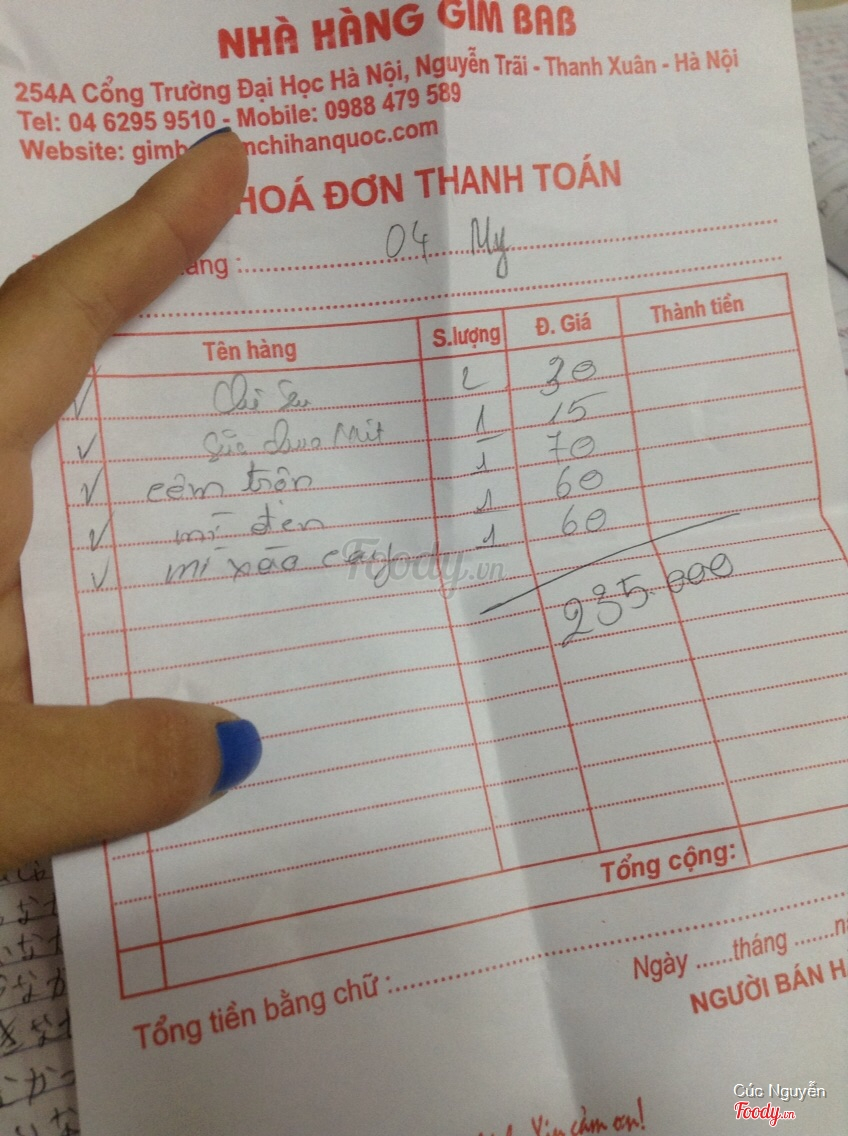 NHÀ HÀNG GIM BAB
254A Cổng Trường Đại Học Hà Nội, Nguyễn Trãi - Thanh Xuân - Hà Nội
Tel: 04 6295 9510 - Mobile: 0988 479 589
Website: gimb mchihanquoc.com
HOÁ ĐƠN THANH TOÁN
àng : 04 My
Tên hàng S.lượng Đ. Giá Thành tiền
2 30
Sữa chua Mít 1 15
cơm trộn 1 70
mì đen 1 60
mì xào cay 1 60
Foody.vn
235.000
Tổng cộng:
Tổng tiền bằng chữ :
Ngày ......tháng .......n
NGƯỜI BÁN H
Xin cảm ơn!
Cúc Nguyễn
Foody.vn